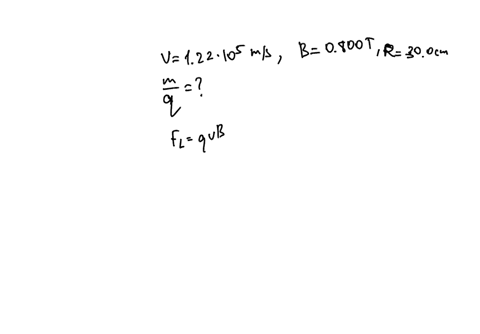 V = 1.22 · 10⁵ m/s, B = 0.800T, R = 30.0cm
m/q = ?
F_L = qvB